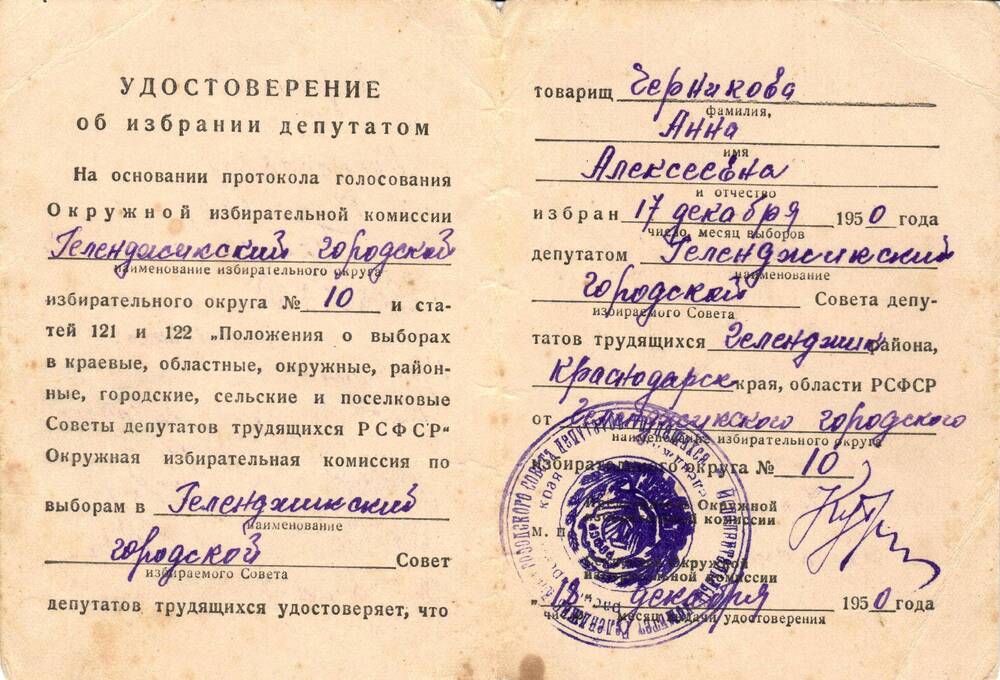 УДОСТОВЕРЕНИЕ
об избрании депутатом
На основании протокола голосования
Окружной избирательной комиссии
Геленджикский городской
наименование избирательного округа
избирательного округа № 10 и ста-
тей 121 и 122 „Положения о выборах
в краевые, областные, окружные, район-
ные, городские, сельские и поселковые
Советы депутатов трудящихся РСФСР“
Окружная избирательная комиссия по
выборам в Геленджикский
наименование
городской Совет
избираемого Совета
депутатов трудящихся удостоверяет, что
товарищ Черникова
фамилия,
Анна
имя
Алексеевна
и отчество
избран 17 декабря 1950 года
число, месяц выборов
депутатом Геленджикский
наименование
городской Совета депу-
избираемого Совета
татов трудящихся Геленджик района,
Краснодарск края, области РСФСР
от Геленджикского городского
наименование избирательного округа
избирательного округа № 10
Окружной
комиссии
м. п.
Окружной
избирательной комиссии
„18 декабря 1950 года
число, месяц выдачи удостоверения